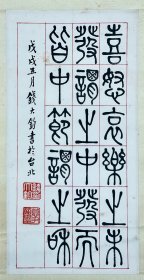 喜怒哀樂之未
發謂之中發而
皆中節謂之和
戊戌五月錢大鈞書於台北